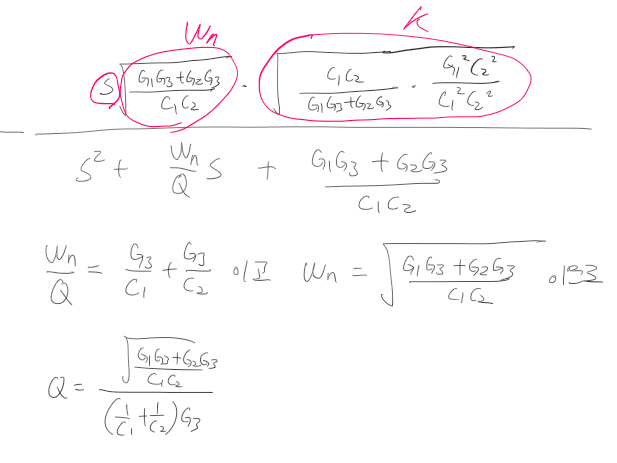 Wn K
S √((G1G3+G2G3)/(C1C2)) · √((C1C2)/(G1G3+G2G3) · (G1²C2²)/(C1²C2²))
S² + (Wn/Q) S + (G1G3 + G2G3)/(C1C2)
Wn/Q = G3/C1 + G3/C2 이고 Wn = √((G1G3 + G2G3)/(C1C2)) 이므로
Q = √((G1G3+G2G3)/(C1C2)) / ((1/C1 + 1/C2)G3)